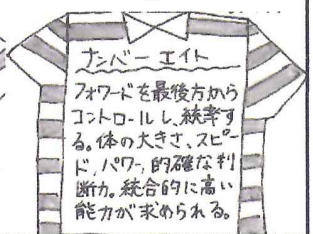 ナンバーエイト
フォワードを最後方から
コントロールし、統率す
る。体の大きさ、スピー
ド、パワー、的確な判
断力。統合的に高い
能力が求められる。